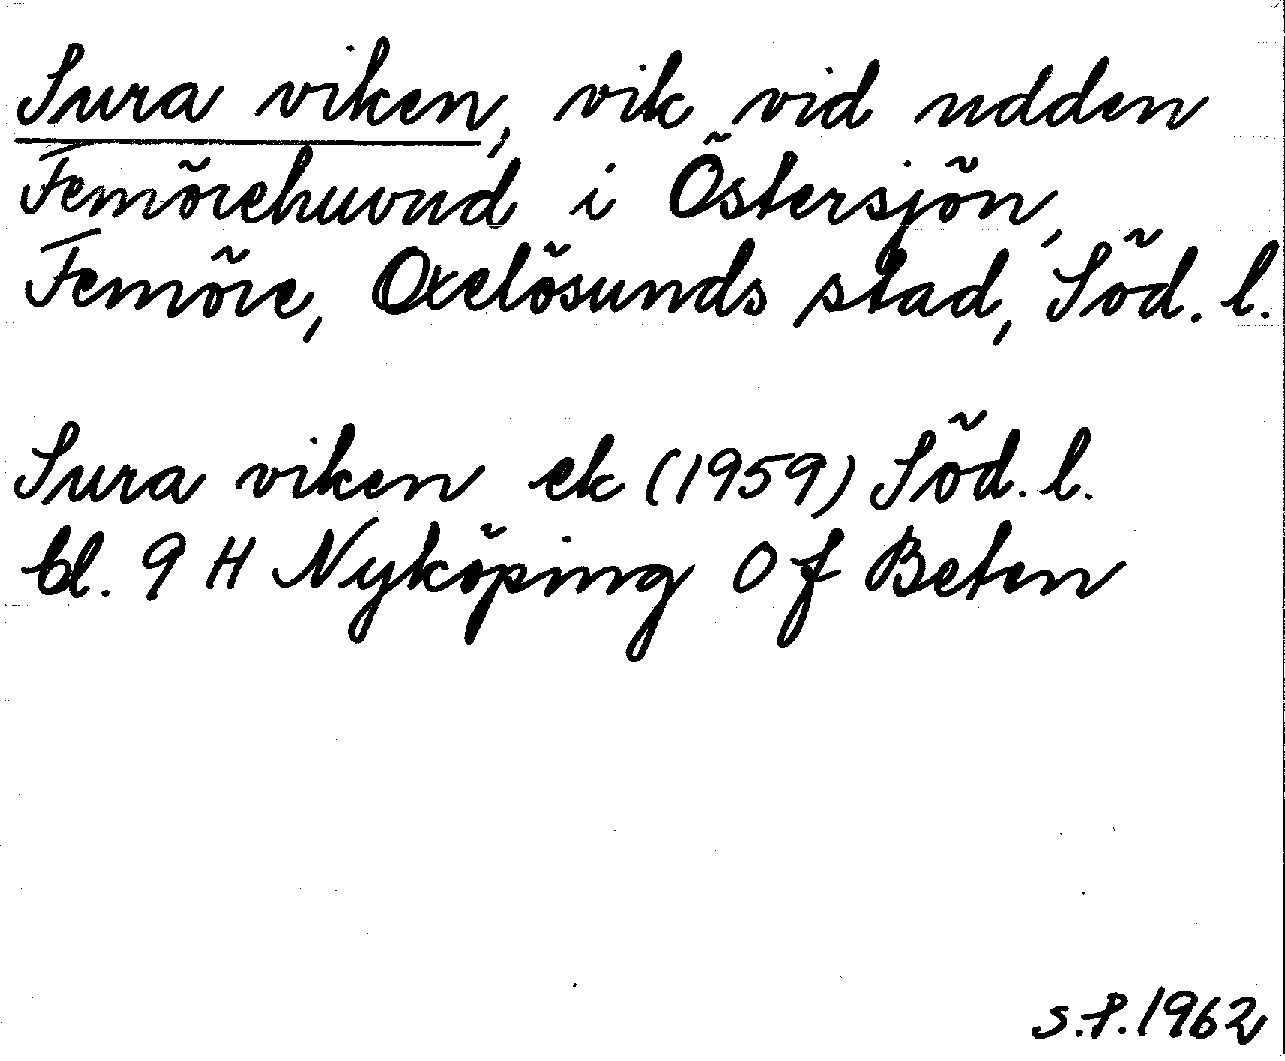 Sura viken, vik vid udden
Femörehuvud i Östersjön,
Femöre, Oxelösunds stad, Söd. l.
Sura viken ek (1959) Söd. l.
bl. 9 H Nyköping 0 f Beten
S.P. 1962